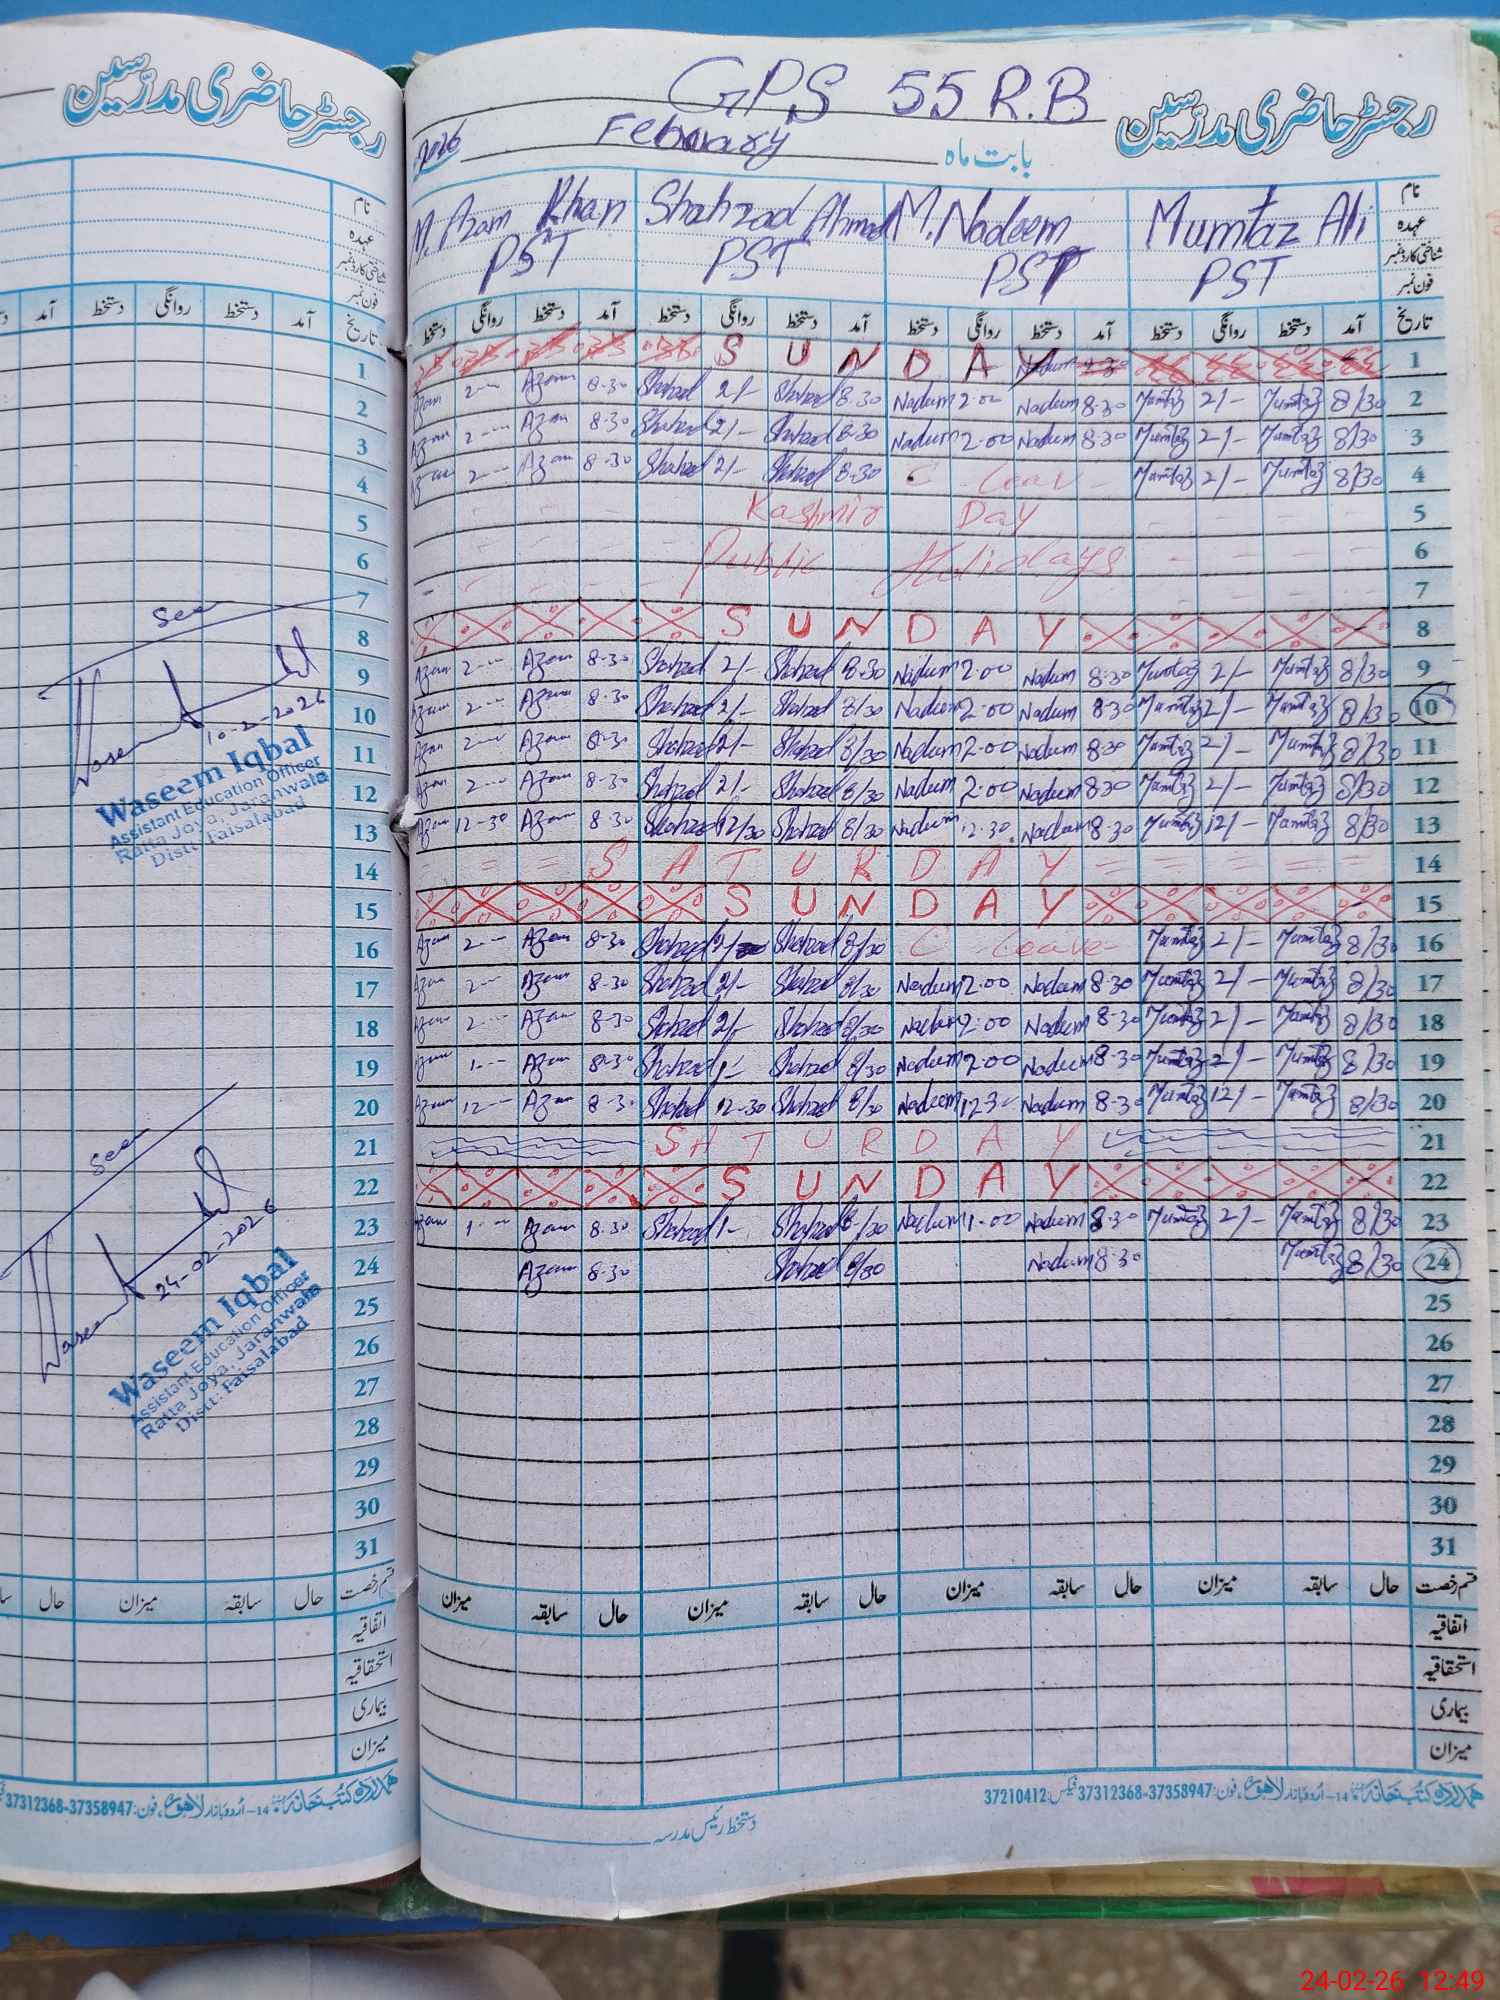 رجسٹر حاضری مدرسین
GPS 55 R.B
رجسٹر حاضری مدرسین
2026
February
بابت ماہ
M. Azam Khan Shahzad Ahmad M. Nadeem Mumtaz Ali نام
عہدہ
PST PST PST PST شناختی کارڈ نمبر
فون نمبر
آمد دستخط روانگی دستخط آمد تاریخ
دستخط روانگی دستخط آمد دستخط روانگی دستخط آمد دستخط روانگی دستخط آمد دستخط روانگی دستخط آمد تاریخ
SUNDAY Nadeem 8-30 1
Azam 2-- Azam 8-30 Shahzad 2/- Shahzad 8-30 Nadeem 2.00 Nadeem 8-30 Mumtaz 2/- Mumtaz 8/30 2
Azam 2-- Azam 8-30 Shahzad 2/- Shahzad 8-30 Nadeem 2.00 Nadeem 8-30 Mumtaz 2/- Mumtaz 8/30 3
Azam 2-- Azam 8-30 Shahzad 2/- Shahzad 8-30 C Leav- Mumtaz 2/- Mumtaz 8/30 4
Kashmir Day 5
Public Holidays 6
7
SUNDAY 8
Azam 2-- Azam 8-30 Shahzad 2/- Shahzad 8-30 Nadeem 2.00 Nadeem 8-30 Mumtaz 2/- Mumtaz 8/30 9
Azam 2-- Azam 8-30 Shahzad 2/- Shahzad 8/30 Nadeem 2.00 Nadeem 8-30 Mumtaz 2/- Mumtaz 8/30 10
Azam 2-- Azam 8-30 Shahzad 2/- Shahzad 8/30 Nadeem 2.00 Nadeem 8-30 Mumtaz 2/- Mumtaz 8/30 11
Azam 2-- Azam 8-30 Shahzad 2/- Shahzad 8/30 Nadeem 2.00 Nadeem 8-30 Mumtaz 2/- Mumtaz 8/30 12
Azam 12-30 Azam 8-30 Shahzad 12/30 Shahzad 8/30 Nadeem 12.30 Nadeem 8-30 Mumtaz 12/- Mumtaz 8/30 13
SATURDAY 14
SUNDAY 15
Azam 2-- Azam 8-30 Shahzad 2/- Shahzad 8/30 C Leave- Mumtaz 2/- Mumtaz 8/30 16
Azam 2-- Azam 8-30 Shahzad 2/- Shahzad 8/30 Nadeem 2.00 Nadeem 8-30 Mumtaz 2/- Mumtaz 8/30 17
Azam 2-- Azam 8-30 Shahzad 2/- Shahzad 8/30 Nadeem 2.00 Nadeem 8-30 Mumtaz 2/- Mumtaz 8/30 18
Azam 1-- Azam 8-30 Shahzad 1/- Shahzad 8/30 Nadeem 2.00 Nadeem 8-30 Mumtaz 2/- Mumtaz 8/30 19
Azam 12-- Azam 8-30 Shahzad 12-30 Shahzad 8/30 Nadeem 12.3- Nadeem 8-30 Mumtaz 12/- Mumtaz 8/30 20
SATURDAY 21
SUNDAY 22
Azam 1-- Azam 8-30 Shahzad 1- Shahzad 8/30 Nadeem 1.00 Nadeem 8-30 Mumtaz 2/- Mumtaz 8/30 23
Azam 8-30 Shahzad 8/30 Nadeem 8-30 Mumtaz 8/30 24
25
26
27
28
29
30
31
میزان سابقہ حال میزان سابقہ حال میزان سابقہ حال میزان سابقہ حال قسم رخصت
اتفاقیہ
استحقاقیہ
بیماری
میزان
ہمدرد کتب خانہ 14-اردو بازار لاہور، فون: 37358947-37312368 فیکس: 37210412
دستخط رئیس مدرسہ
نام
عہدہ
شناختی کارڈ نمبر
فون نمبر
1
2
3
4
5
6
7
8
9
10
11
12
13
14
15
16
17
18
19
20
21
22
23
24
25
26
27
28
29
30
31
Seen
Waseem
10-2-2026
Waseem Iqbal
Assistant Education Officer
Ratta Joya, Jaranwala
Distt: Faisalabad
Seen
Waseem
24-02-2026
Waseem Iqbal
Assistant Education Officer
Ratta Joya, Jaranwala
Distt: Faisalabad
حال سابقہ میزان سابقہ حال قسم رخصت
اتفاقیہ
استحقاقیہ
بیماری
میزان
ہمدرد کتب خانہ 14-اردو بازار لاہور، فون: 37358947-37312368
24-02-26 12:49